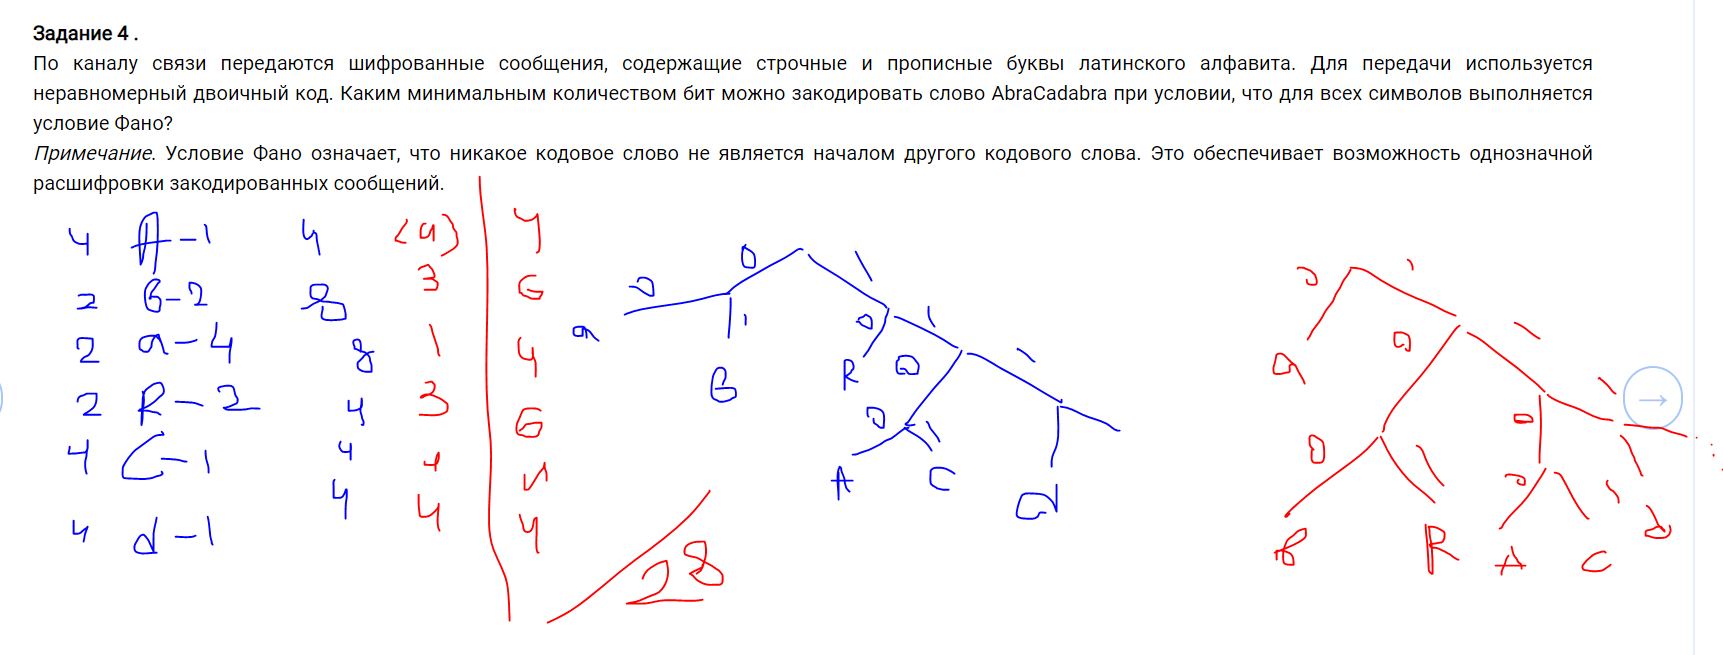 Задание 4 .
По каналу связи передаются шифрованные сообщения, содержащие строчные и прописные буквы латинского алфавита. Для передачи используется
неравномерный двоичный код. Каким минимальным количеством бит можно закодировать слово AbraCadabra при условии, что для всех символов выполняется
условие Фано?
Примечание. Условие Фано означает, что никакое кодовое слово не является началом другого кодового слова. Это обеспечивает возможность однозначной
расшифровки закодированных сообщений.
4 A-1 4 (4) 4
2 B-2 8 3 6
2 a-4 8 1 4
2 R-2 4 3 6
4 C-1 4 4 4
4 d-1 4 4 4
28
0 1
0 1 0 1
a B R 0 1
0 1
A C d
0 1
a 0 1
0 1 0 1
B R 0 1 1
A C d